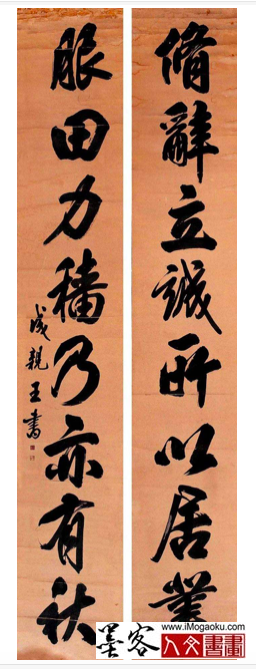 脩辭立誠所以居業
服田力穡乃亦有秋
成親王書
墨客
www.iMogaoku.com
人文書畫